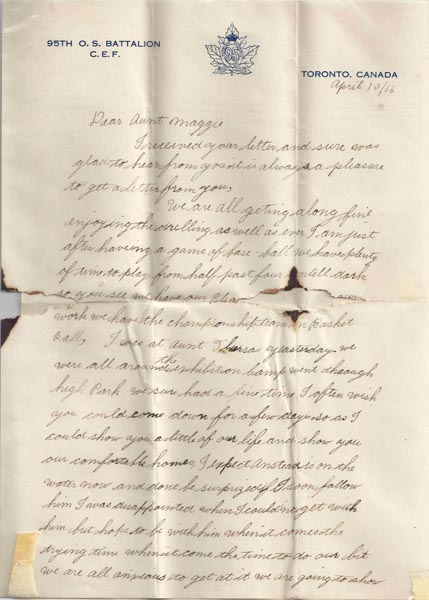 95TH O. S. BATTALION
C. E. F.
95
TORONTO, CANADA
April 10/16
Dear Aunt Maggie
I received your letter and sure was
glad to hear from you it is always a pleasure
to get a letter from you,
We are all geting along fine
enjoying the drilling as well as ever I am just
after haveing a game of base ball we have plenty
of time to play from half past four untill dark
so you see we have our
work we have the championship team in Basket
Ball, I was at Aunt Thersas yesterday we
were all around the exhibition camp went through
high Park we sur had a fine time I often wish
you could come down for a few days so as I
could show you a little of our life and show you
our comfortable homes, I expect Anstead is on the
water now and done be surprized if I soon follow
him I was disappointed when I could not get with
him but hope to be with him when it comes the
trying time when it come the time to do our bit
we are all anxious to get at it we are going to show